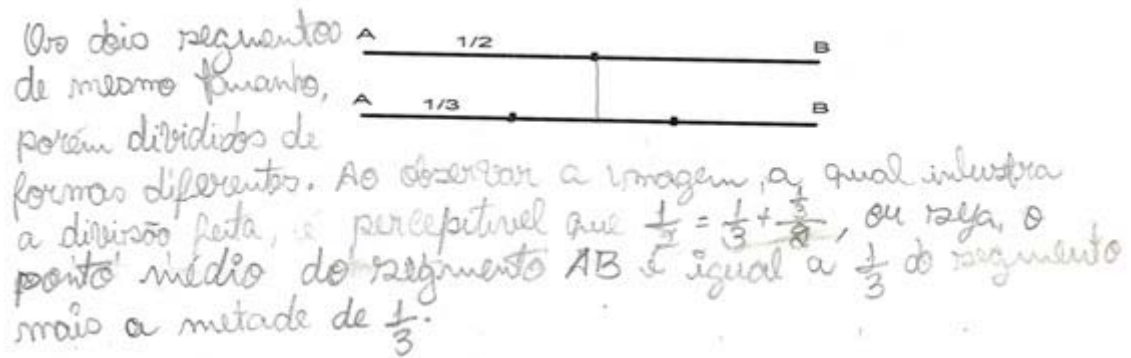 Os dois segmentos
de mesmo tamanho,
porém divididos de
A 1/2 B
A 1/3 B
formas diferentes. Ao observar a imagem, a qual inlustra
a divisão feita, é percepitivel que 1/2 = 1/3 + (1/3)/2, ou seja, o
ponto médio do segmento AB é igual a 1/3 do segmento
mais a metade de 1/3.